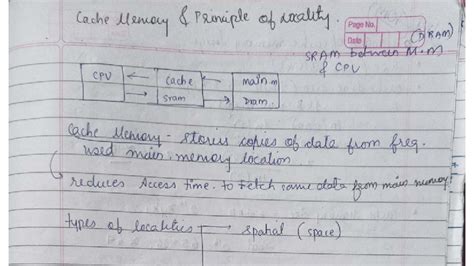 Cache Memory & Principle of Locality.
Page No.
Date
(SRAM)
SRAM between M.M
& CPU
CPU
cache
sram
main.m
dram.
Cache Memory - stores copies of data from freq.
used main memory location
reduces Access time. to fetch same data from main memory
types of localities
spatial (space)